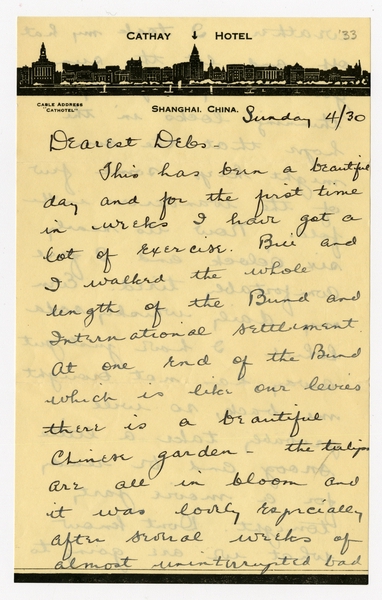 CATHAY HOTEL '33
CABLE ADDRESS
"CATHOTEL"
SHANGHAI, CHINA. Sunday 4/30
Dearest Debs-
This has been a beautiful
day and for the first time
in weeks I have got a
lot of exercise. Bill and
I walked the whole
length of the Bund and
International Settlement.
At one end of the Bund
which is like our levies
there is a beautiful
Chinese garden - the tulips
are all in bloom and
it was lovely especially
after several weeks of
almost uninterrupted bad